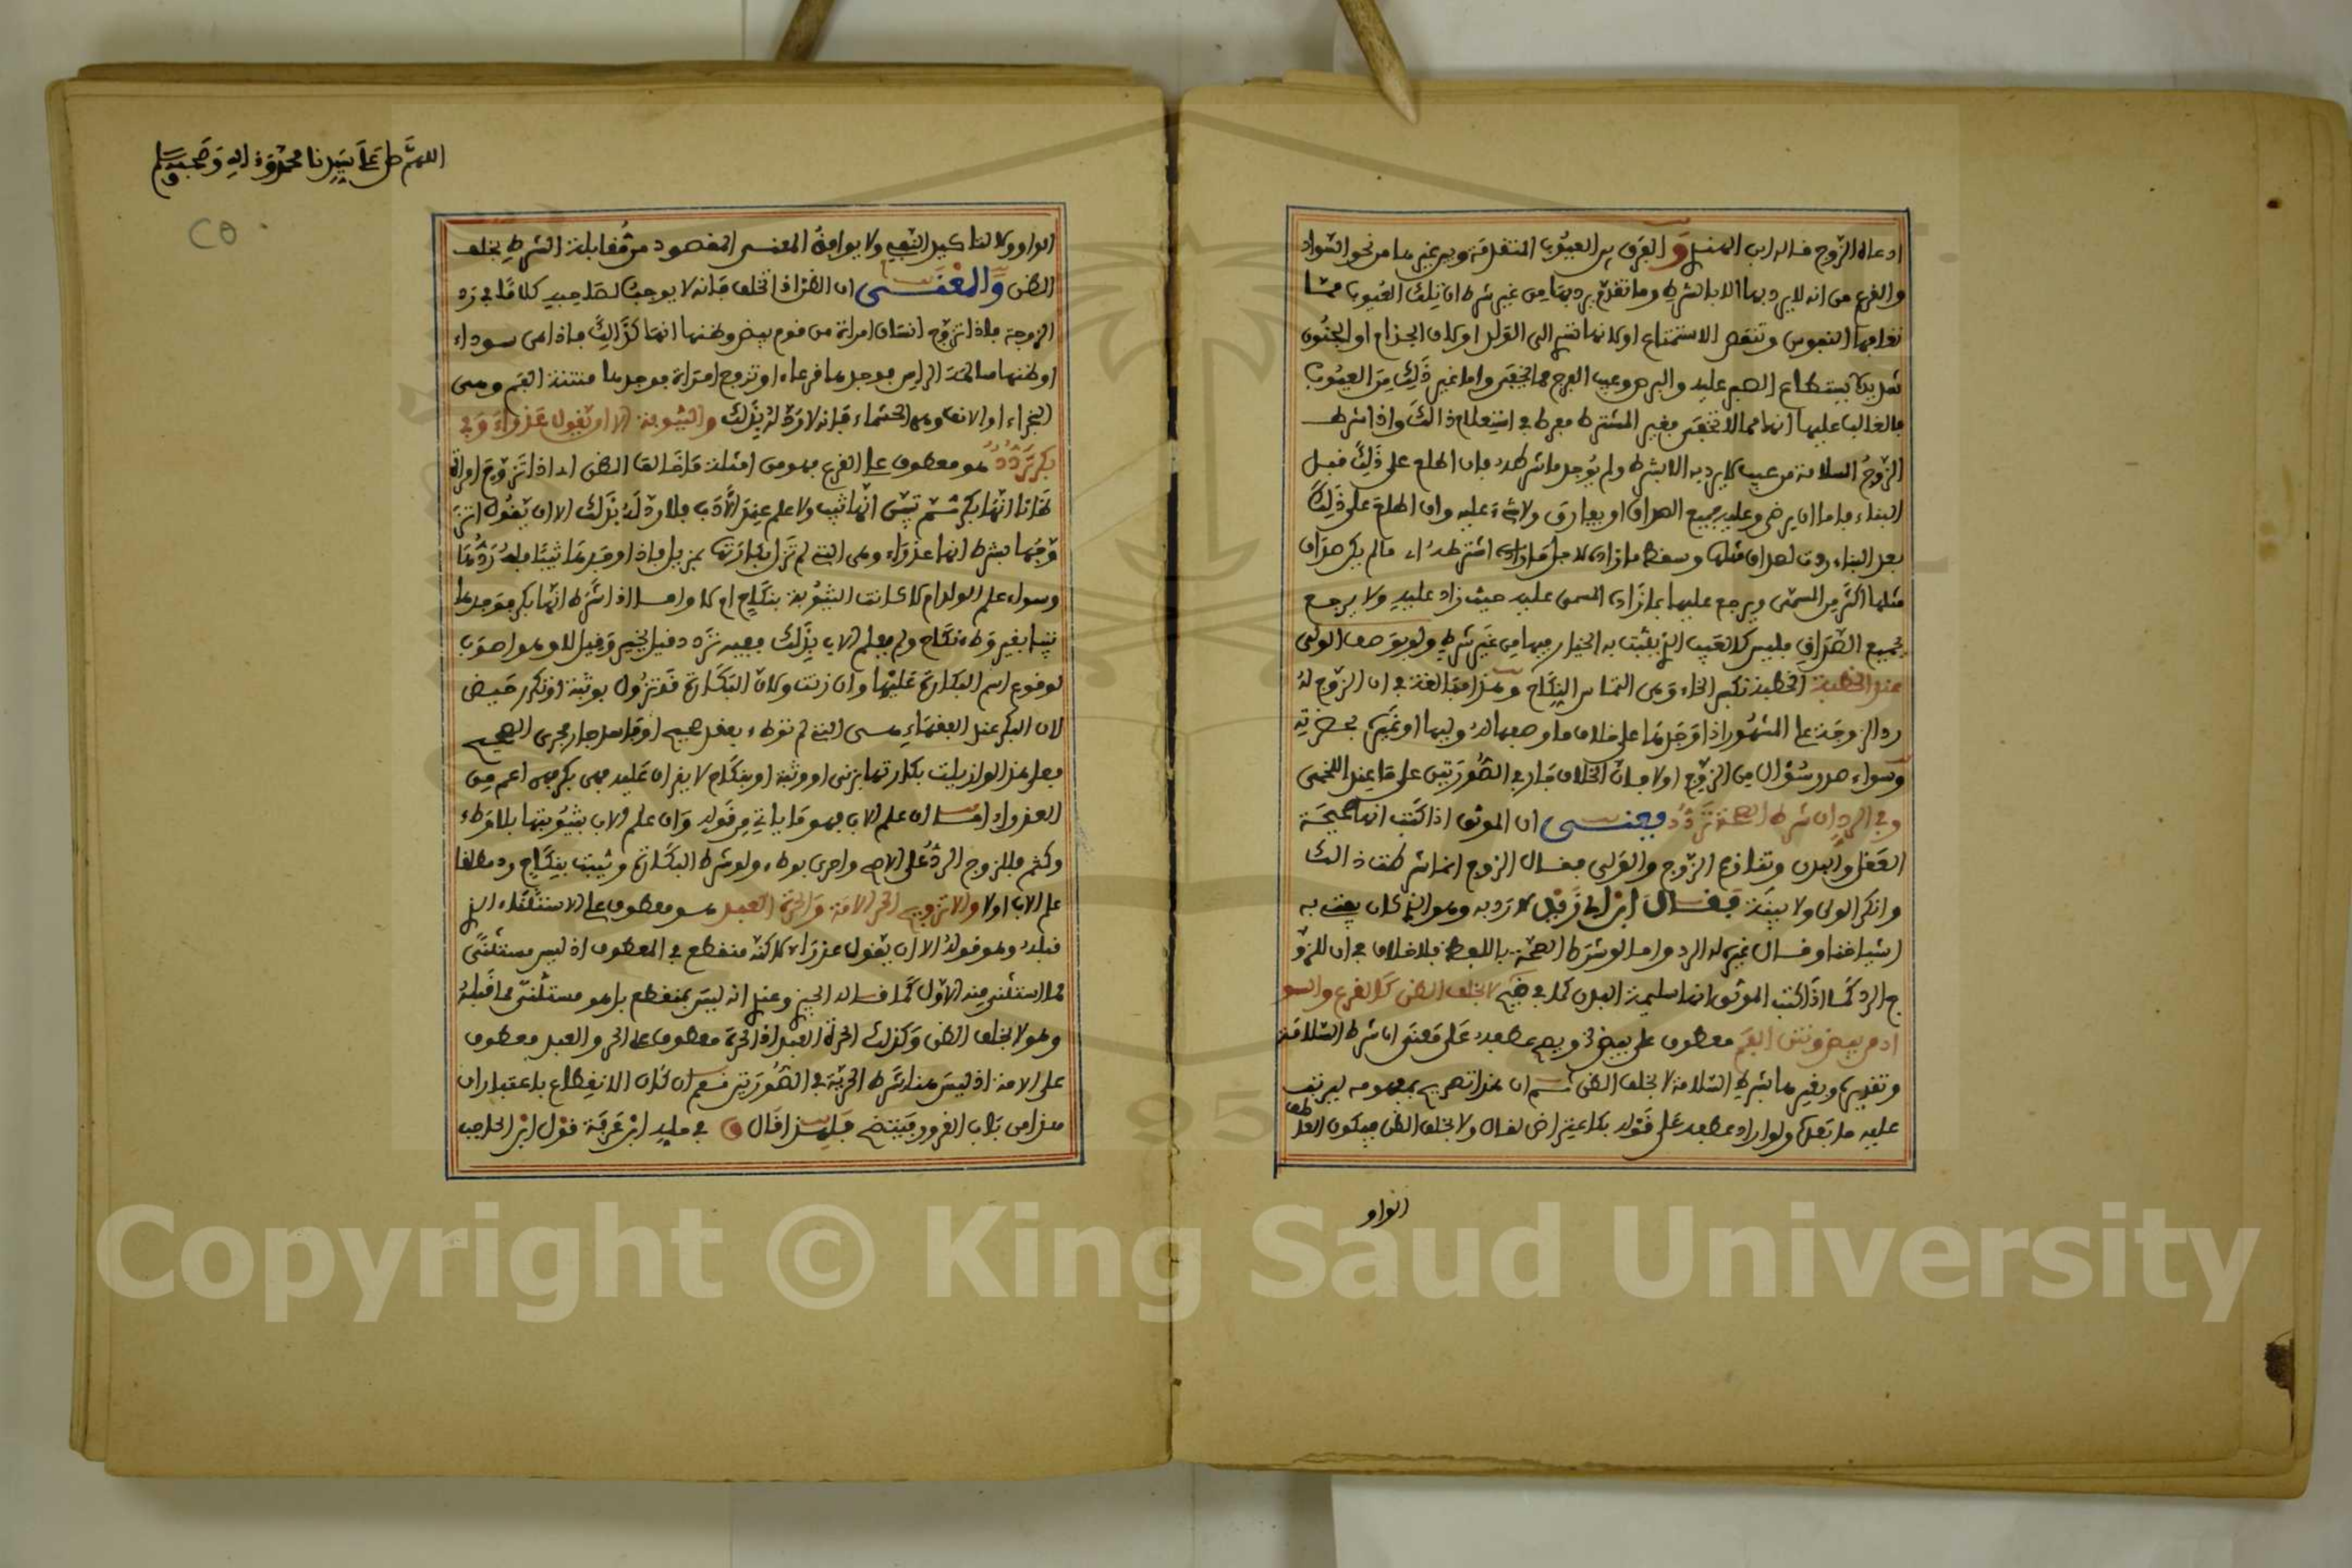 ادعاه الزوج قاله ابن الهندي و الفرق بين العيوب المتقدمة وبين غيرها من نحو السواد
والقرع من انه لا يرد بها الا بالشرط وما تقدم يرد بها من غير شرط ان تلك العيوب مما
تعافها النفوس وتنقص الاستمتاع اولانها تسري الى الولد اولان الجذام او الجنون
شديد لا يستطاع الصبر عليه والبرص وعيب الفرج مما يخفى واما غير ذلك من العيوب
فالغالب عليها انها مما لا تخفى فغير المشترط مفرط في استعلام ذالك واذا شرط
الزوج السلامة من عيب لا يرد به الا بشرط ولم يوجد ما شرطه فان اطلع على ذلك قبل
البناء فاما ان يرضى وعليه جميع الصداق او يفارق ولا شيء عليه وان اطلع على ذلك
بعد البناء ردت لصداق مثلها وسقط ما زاده لاجل ما اشترطه اء ما لم يكن صداق
مثلها اكثر من المسمى ويرجع عليها بما زاده المسمى عليه حيث زاد عليه ولا يرجع
بجميع الصداق فليس كالعيب الذي يثبت به الخيار فيها من غير شرط ولو بوصف الولي
عند الخطبة الخطبة بكسر الخاء وهي التماس النكاح وهذا مبالغة في ان الزوج له
رد الزوجة على المشهور اذا وجدها على خلاف ما وصفها له وليها او غيره بحضرته
وسواء صدر سؤال من الزوج اولا فان الخلاف جار في الصورتين على ما عند اللخمي
وفي الرد ان شرط الصحة تردد يعنى ان الموثق اذا كتب انها صحيحة
العقل والبدن وتنازع الزوج والولي فقال الزوج انما شرطت ذالك
وانكر الولي ولا بينة فقال ابن ابي زيد لا رد به وهو الذي كان يفتي به
اشياخنا وقال غيره له الرد واما لو شرط الصحة باللفظ فلا خلاف في ان للزو
ج الرد كما اذا كتب الموثق انها سليمة البدن كما في ضيح لا بخلف الظن كالقرع والسو
اد من بيض ونتن الفم معطوف على بيض في ويصح عطفه على معنى ان شرط السلامة
وتقديره وبغيرها بشرط السلامة لا بخلف الظن ثم ان هذا تصريح بمفهومه ليرتب
عليه ما بعده ولو اراد عطفه على قوله بكاعتراض لقال ولا بخلف الظن فيكون العطف
الواو
اللهم صل على سيدنا محمد وءاله وصحبه وسلم
الواو ولا لتاكيد النفي ولا يوافق المعنى المقصود من مقابلة الشرط بخلف
الظن والمعنى ان الظن اذا تخلف فانه لا يوجب لصاحبه كلاما في رد
الزوجة فاذا تزوج انسان امراة من قوم بيض وظنها انها كذالك فاذا هي سوداء
او ظنها سالمة الراس فوجدها قرعاء او تزوج امراة فوجدها منتنة الفم وهي
البخراء او الانف وهي الخشماء فانه لا رد له بذلك والثيوبة الا ان يقول عذراء وفي
بكر تردد هو معطوف على القرع فهو من امثلة ما خالف الظن اى اذا تزوج امراة
ظانا انها بكر ثم تبين انها ثيب ولا علم عند الاب فلا رد له بذلك الا ان يقول اتز
وجها بشرط انها عذراء وهي التي لم تزل بكارتها بمزيل فاذا وجدها ثيبا فله ردها
وسواء علم الولي ام لا كانت الثيوبة بنكاح ام لا واما اذا شرط انها بكر فوجدها
ثيبا بغير وطء نكاح ولم يعلم الاب بذلك ففيه تردد فقيل يخير وقيل لا وهو اصوب
لوقوع اسم البكارة عليها وان زنت ولان البكارة قد تزول بوثبة او تكرر حيض
لان البكر عند الفقهاء هى التي لم توطء بعقد صحيح او فاسد جار مجرى الصحيح
فعلى هذا لو ازيلت بكارتها بزنى او وثبة او بنكاح لا يقران عليه فهي بكر فهي اعم من
العذراء اما ان علم الاب فهو ما ياتي من قوله وان علم الاب بثيوبتها بلا وطء
وكتم فللزوج الرد على الاصح واحرى بوطء ولو شرط البكارة وثيبت بنكاح رد مطلقا
علم الاب اولا والا تزويج الحر الامة والحرة العبد هو معطوف على الاستثناء الذي
قبله وهو قوله الا ان يقول عذراء لاكنه منقطع في المعطوف اذ ليس مستثنى
مما استثني منه الاول كما قاله الجيزي وعندي انه ليس بمنقطع بل هو مستثنى مما قبله
وهو لا بخلف الظن وكذلك الحرة العبد اذ الحرة معطوف على الحر والعبد معطوف
على الامة اذ ليس هنا شرط الحرية في الصورتين نعم ان كان الانقطاع باعتبار ان
هذا من باب الغرور فيتضح فلهذا قال في ما يد ابن عرفة قول ابن الحاجب